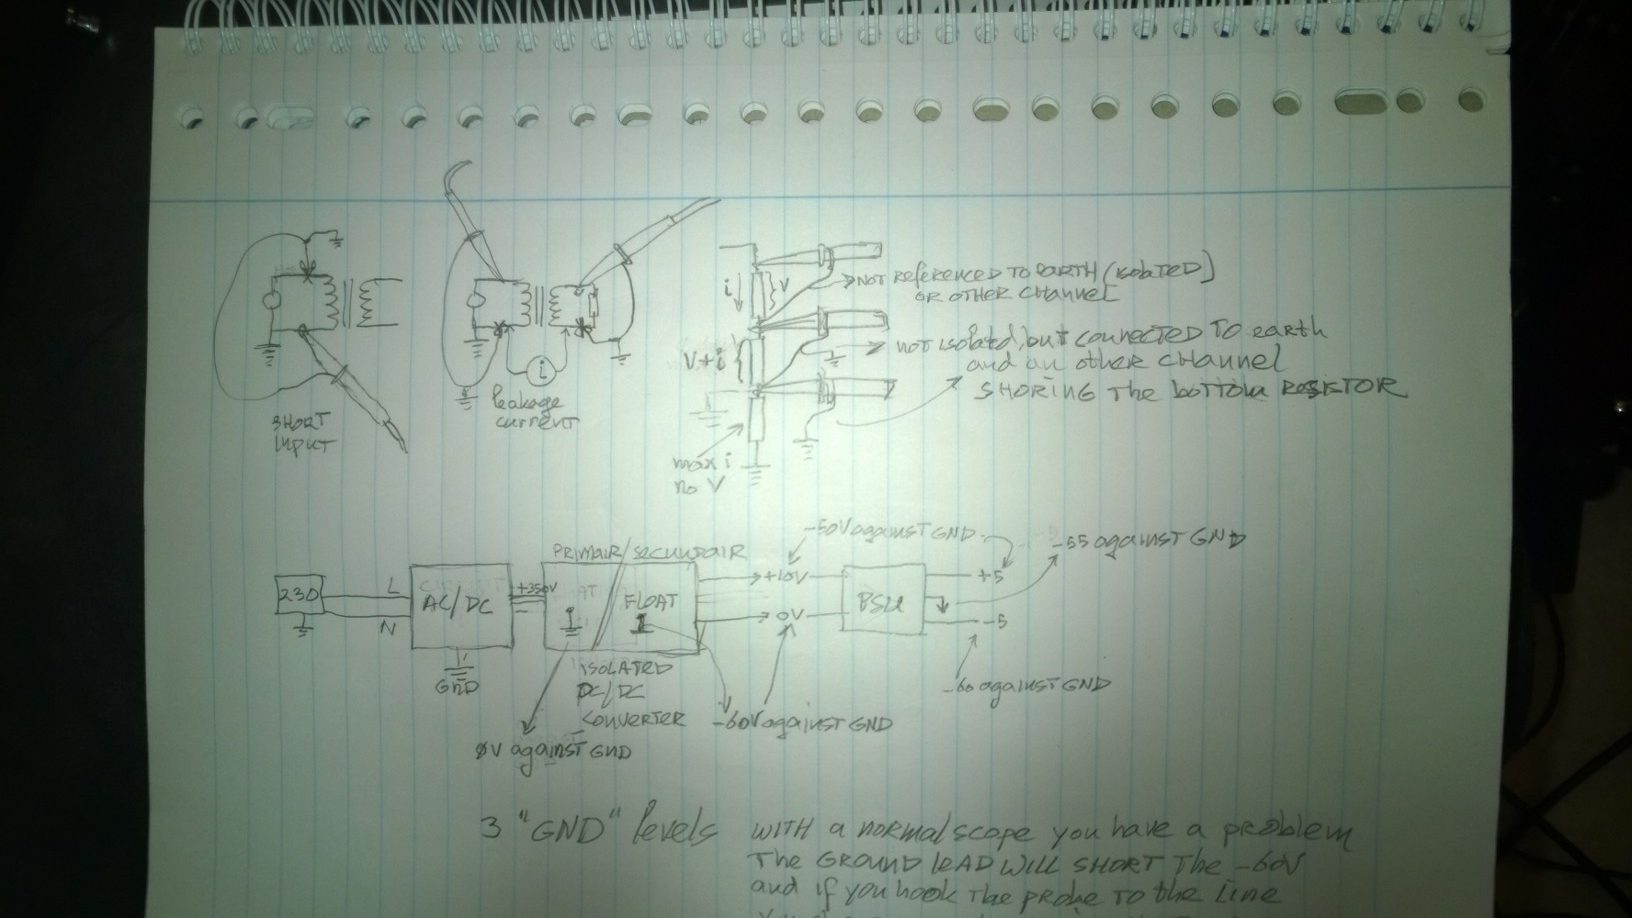 SHORT
INPUT
leakage
current
i
i
V
V+i
max i
no V
NOT REFERENCED TO EARTH (ISOLATED)
OR OTHER CHANNEL
not isolated, but connected to earth
and an other CHANNEL
SHORING THE bottom RESISTOR
PRIMAIR/SECUNDAIR
-50V against GND
-55 against GND
230
L
N
AC/DC
GND
+350V
-
FLOAT
+10V
0V
PSU
+5
-5
ISOLATED
DC/DC
CONVERTER
-60V against GND
-60 against GND
0V against GND
3 "GND" levels
WITH a normal scope you have a problem
THE GROUND LEAD WILL SHORT THE -60V
and if you hook THE probe TO the Line